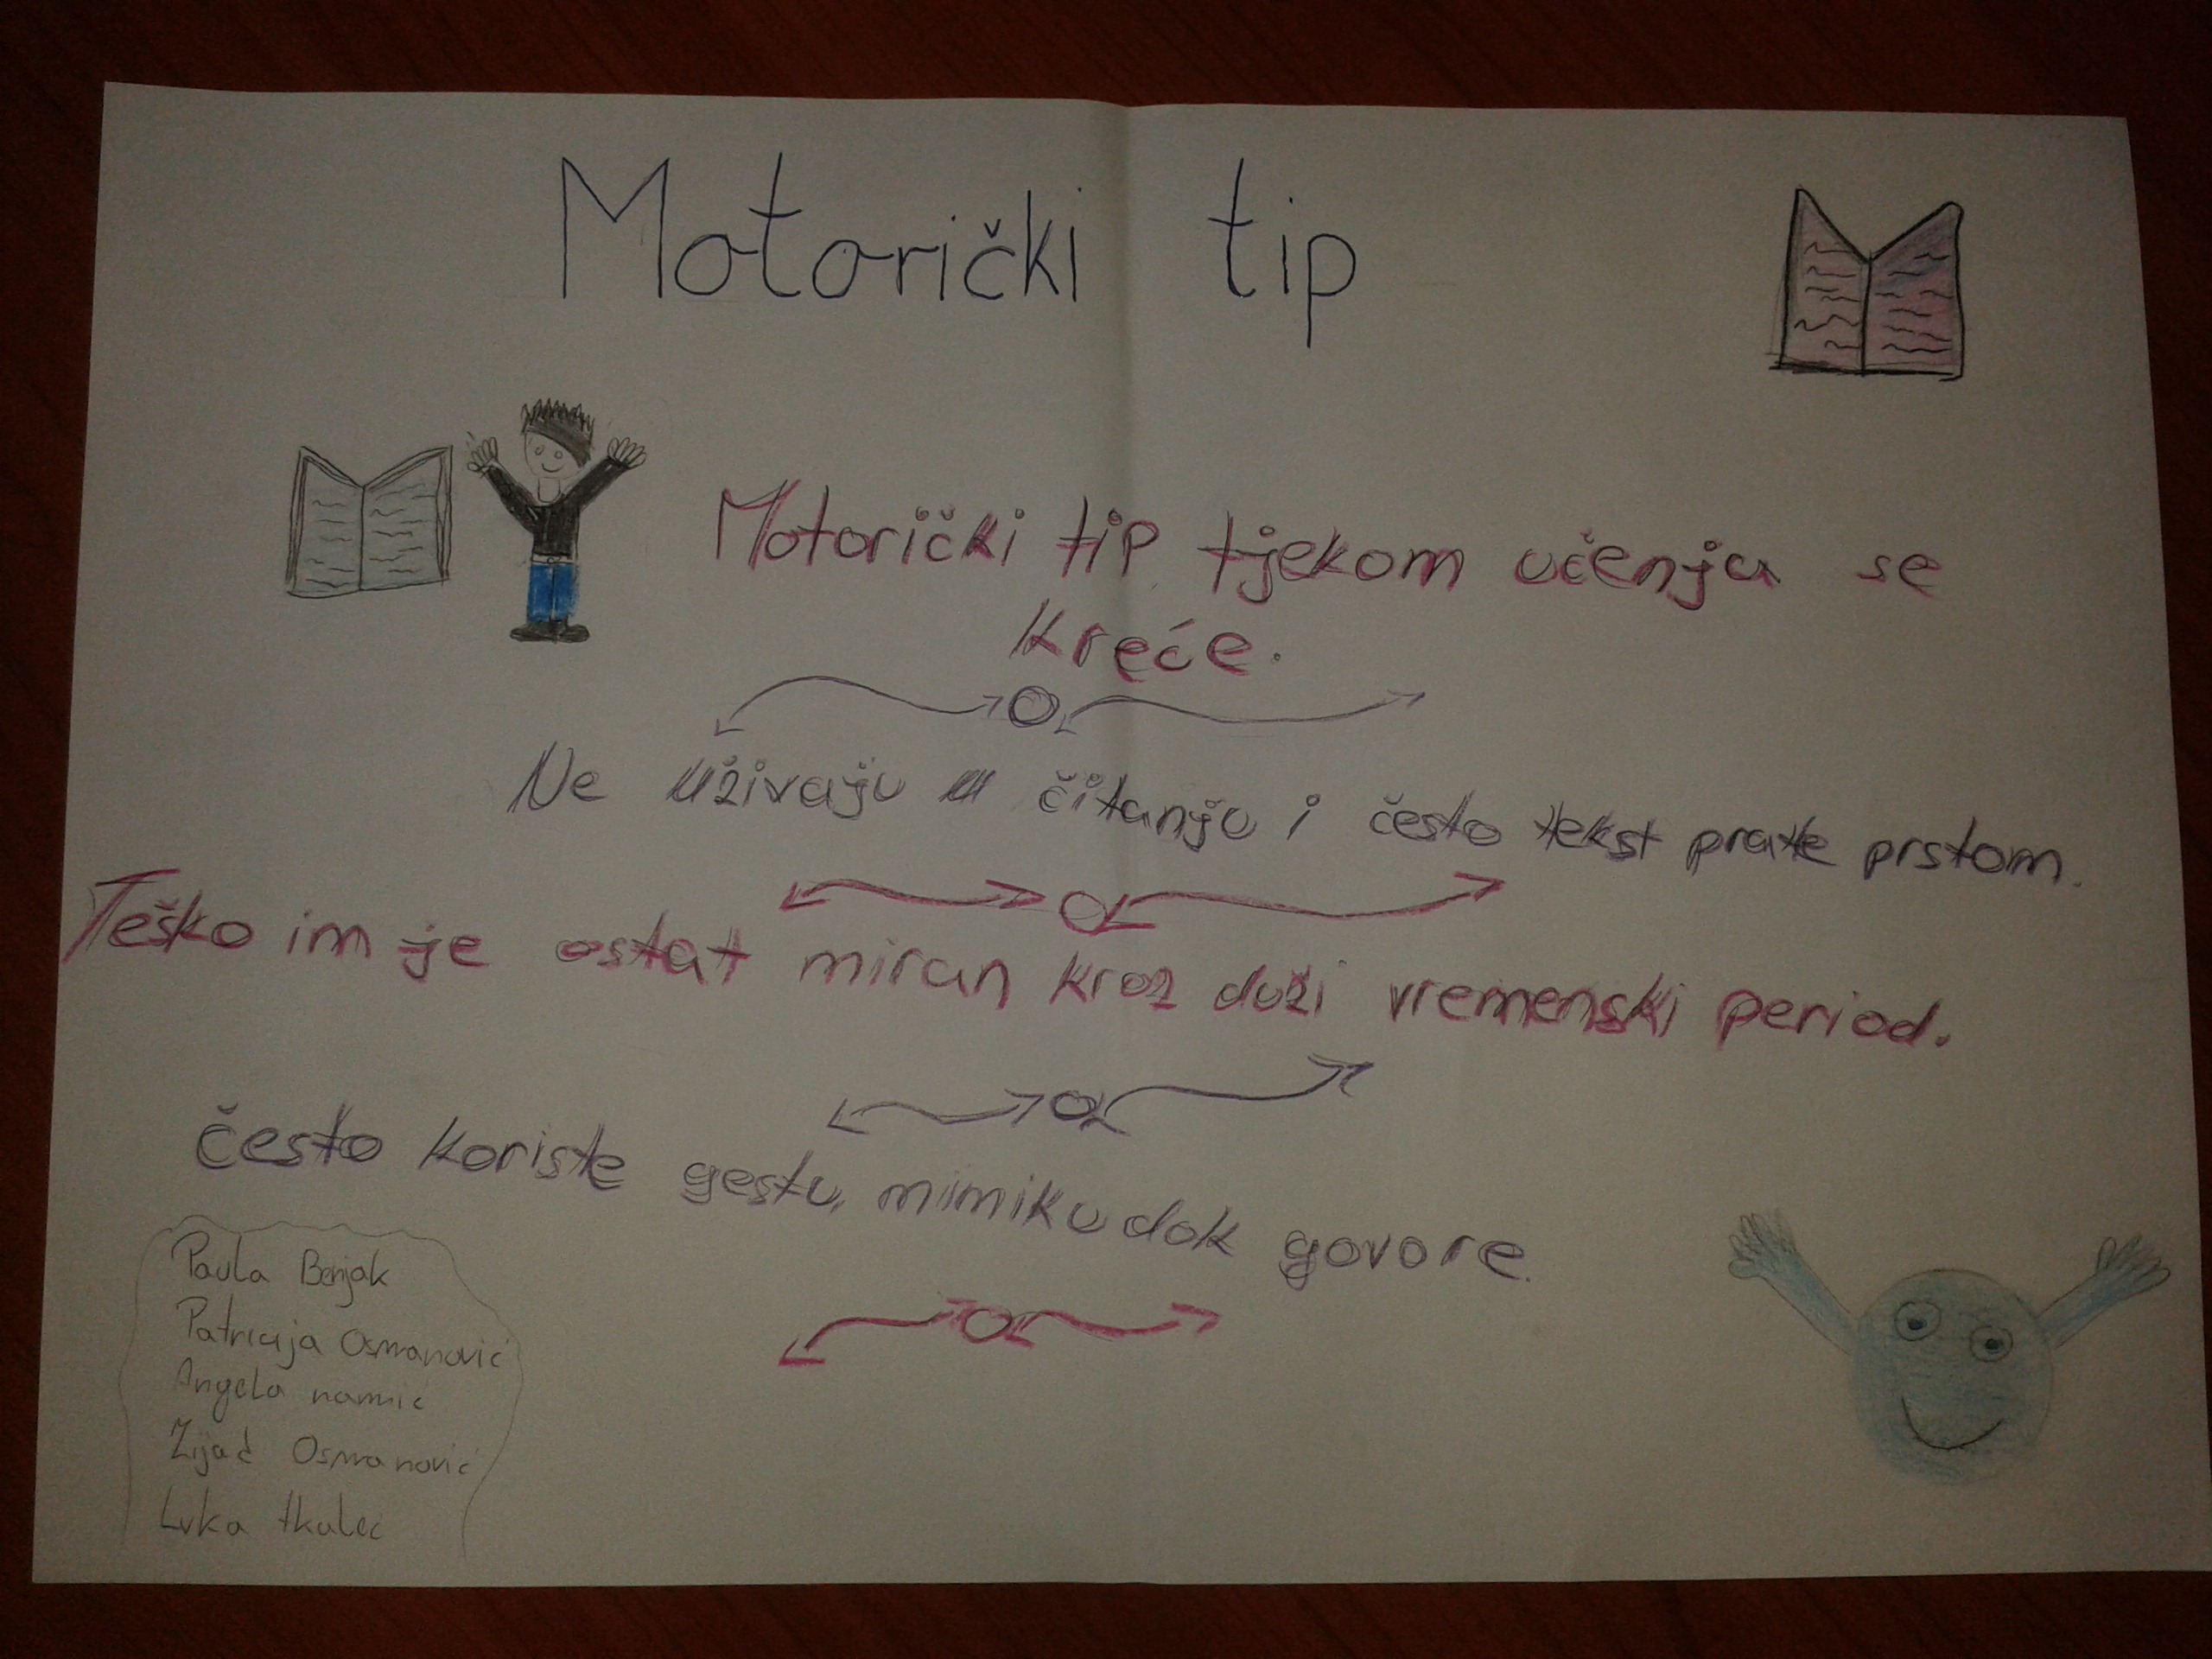 Motorički tip
Motorički tip tjekom učenja se
kreće.
Ne uživaju u čitanju i često tekst prate prstom.
Teško im je ostat miran kroz duži vremenski period.
često koriste gestu, mimiku dok govore.
Paula Benjak
Patricija Osmanović
Angela namić
Zijad Osmanović
Luka tkalec